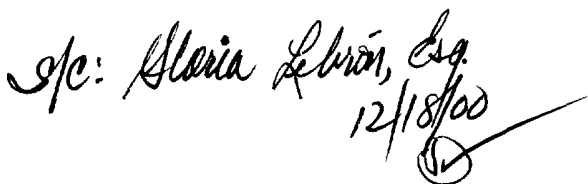 s/c: Gloria Lebrón, Esq.
12/18/00